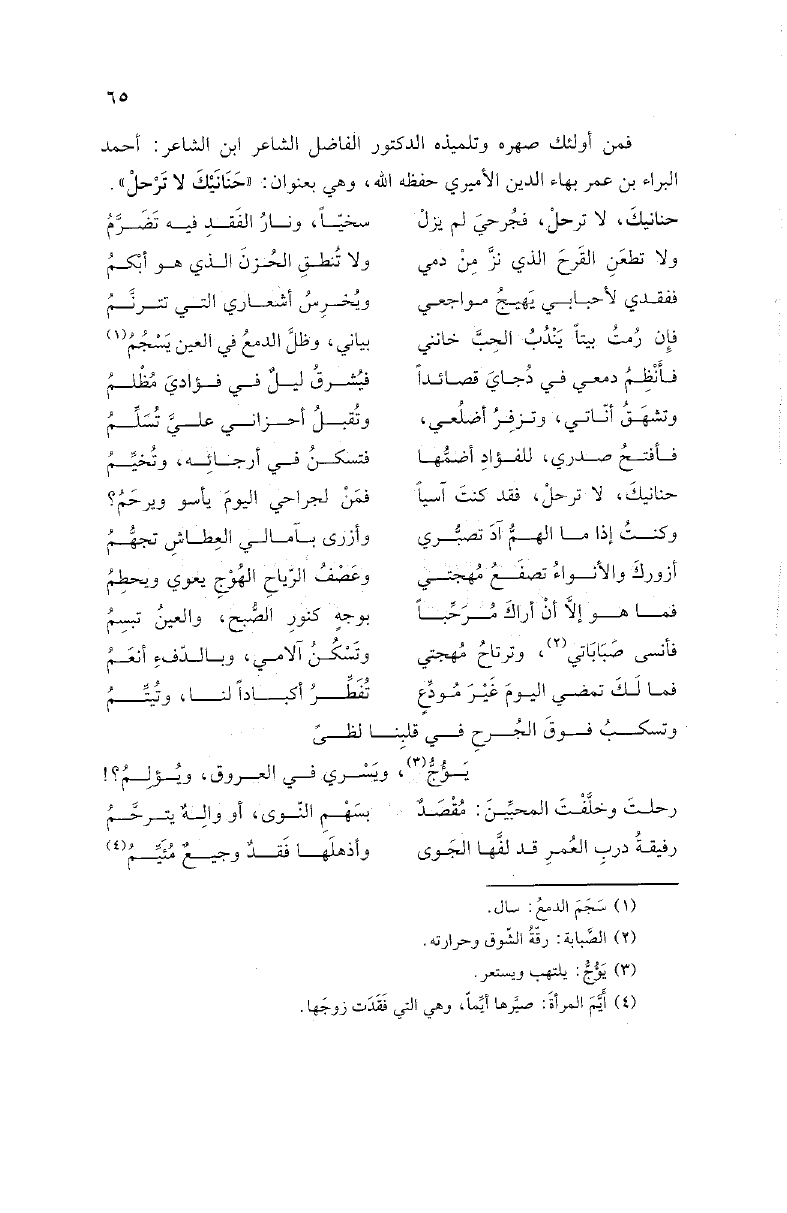 ٦٥
فمن أولئك صهره وتلميذه الدكتور الفاضل الشاعر ابن الشاعر: أحمد
البراء بن عمر بهاء الدين الأميري حفظه الله، وهي بعنوان: «حَنَانَيْكَ لا تَرْحلْ».
حنانيكَ، لا ترحلْ، فجُرحيَ لم يزلْ سخيّاً، ونارُ الفَقدِ فيه تَضَرَّمُ
ولا تطعَنِ القَرحَ الذي نزَّ مِنْ دمي ولا تُنطقِ الحُزنَ الذي هو أبْكمُ
ففقدي لأحبابي يَهيجُ مواجعي ويُخرِسُ أشعاري التي تترنَّمُ
فإن رُمتُ بيتاً يَنْدُبُ الحِبَّ خانني بياني، وظلَّ الدمعُ في العين يَسْجُمُ(١)
فأنْظِمُ دمعي في دُجايَ قصائداً فيُشرقُ ليلٌ في فؤاديَ مُظْلمُ
وتشهَقُ أنّاتي، وتزفِرُ أضلُعي، وتُقبلُ أحزاني عليَّ تُسَلِّمُ
فأفتحُ صدري، للفؤادِ أضمُّها فتسكنُ في أرجائه، وتُخيِّمُ
حنانيكَ، لا ترحلْ، فقد كنتَ آسياً فمَنْ لجراحي اليومَ يأسو ويرحَمُ؟
وكنتُ إذا ما الهمُّ آدَ تصبُّري وأزرى بآمالي العِطاشِ تجهُّمُ
أزوركَ والأنواءُ تصفَعُ مُهجتي وعَصْفُ الرِّياحِ الهُوْجِ يعوي ويحطِمُ
فما هو إلاَّ أنْ أراكَ مُرَحِّباً بوجهٍ كنورِ الصُّبحِ، والعينُ تبسِمُ
فأنسى صَبَابَاتي(٢)، وترتاحُ مُهجتي وتَسْكُنُ آلامي، وبالدّفءِ أنعَمُ
فما لَكَ تمضي اليومَ غَيْرَ مُودِّعٍ تُفَطِّرُ أكباداً لنا، وتُيَتِّمُ
وتسكبُ فوقَ الجُرحِ في قلبِنا لظىً
يَؤُجُّ(٣)، ويَسْري في العروقِ، ويُؤلِمُ؟!
رحلتَ وخلَّفْتَ المحبِّينَ: مُقْصَدٌ بسَهْمِ النّوى، أو والِهٌ يترحَّمُ
رفيقةُ دربِ العُمرِ قد لفَّها الجَوى وأذهلَها فَقدٌ وجيعٌ مُئَيِّمُ(٤)
(١) سَجَمَ الدمعُ: سال.
(٢) الصَّبابة: رقّةُ الشّوق وحرارته.
(٣) يَؤُجُّ: يلتهب ويستعر.
(٤) أَيَّمَ المرأةَ: صيَّرها أيِّماً، وهي التي فَقَدَت زوجَها.